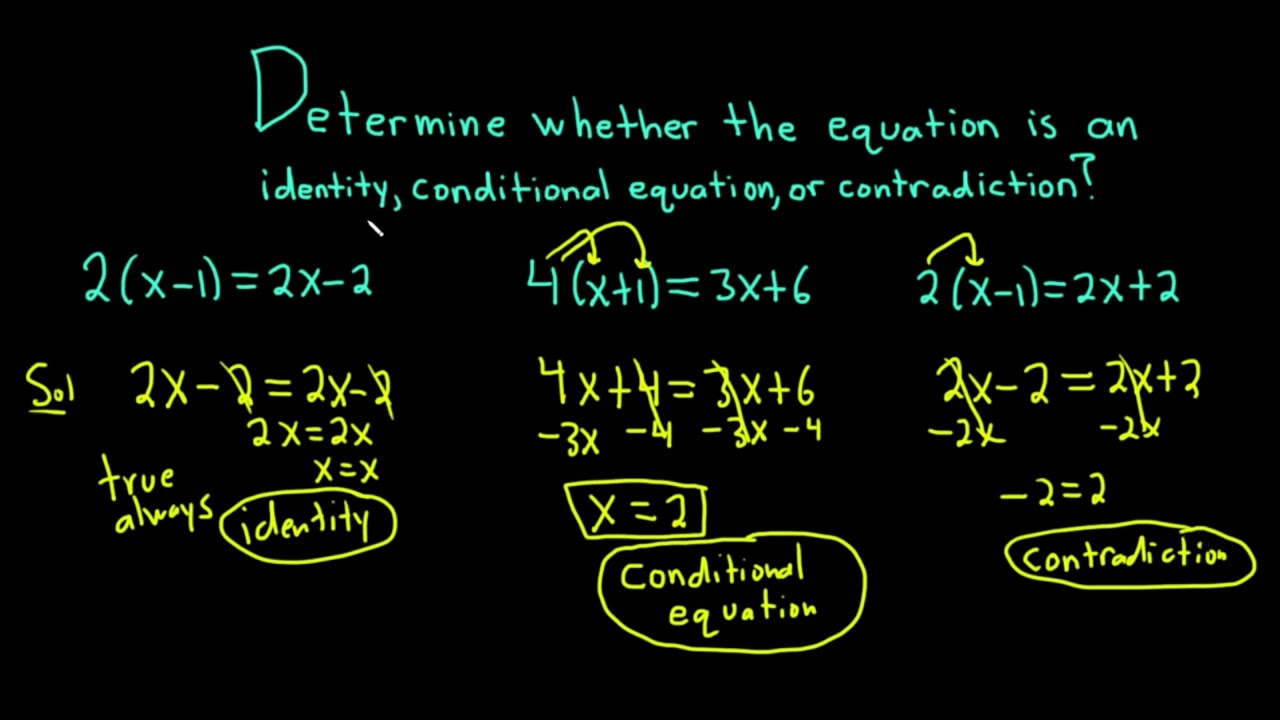 Determine whether the equation is an
identity, conditional equation, or contradiction?
2(x-1)=2x-2
4(x+1)=3x+6
2(x-1)=2x+2
Sol
2x-2=2x-2
2x=2x
x=x
true
always
identity
4x+4=3x+6
-3x -4 -3x -4
x=2
Conditional
equation
2x-2=2x+2
-2x -2x
-2=2
Contradiction